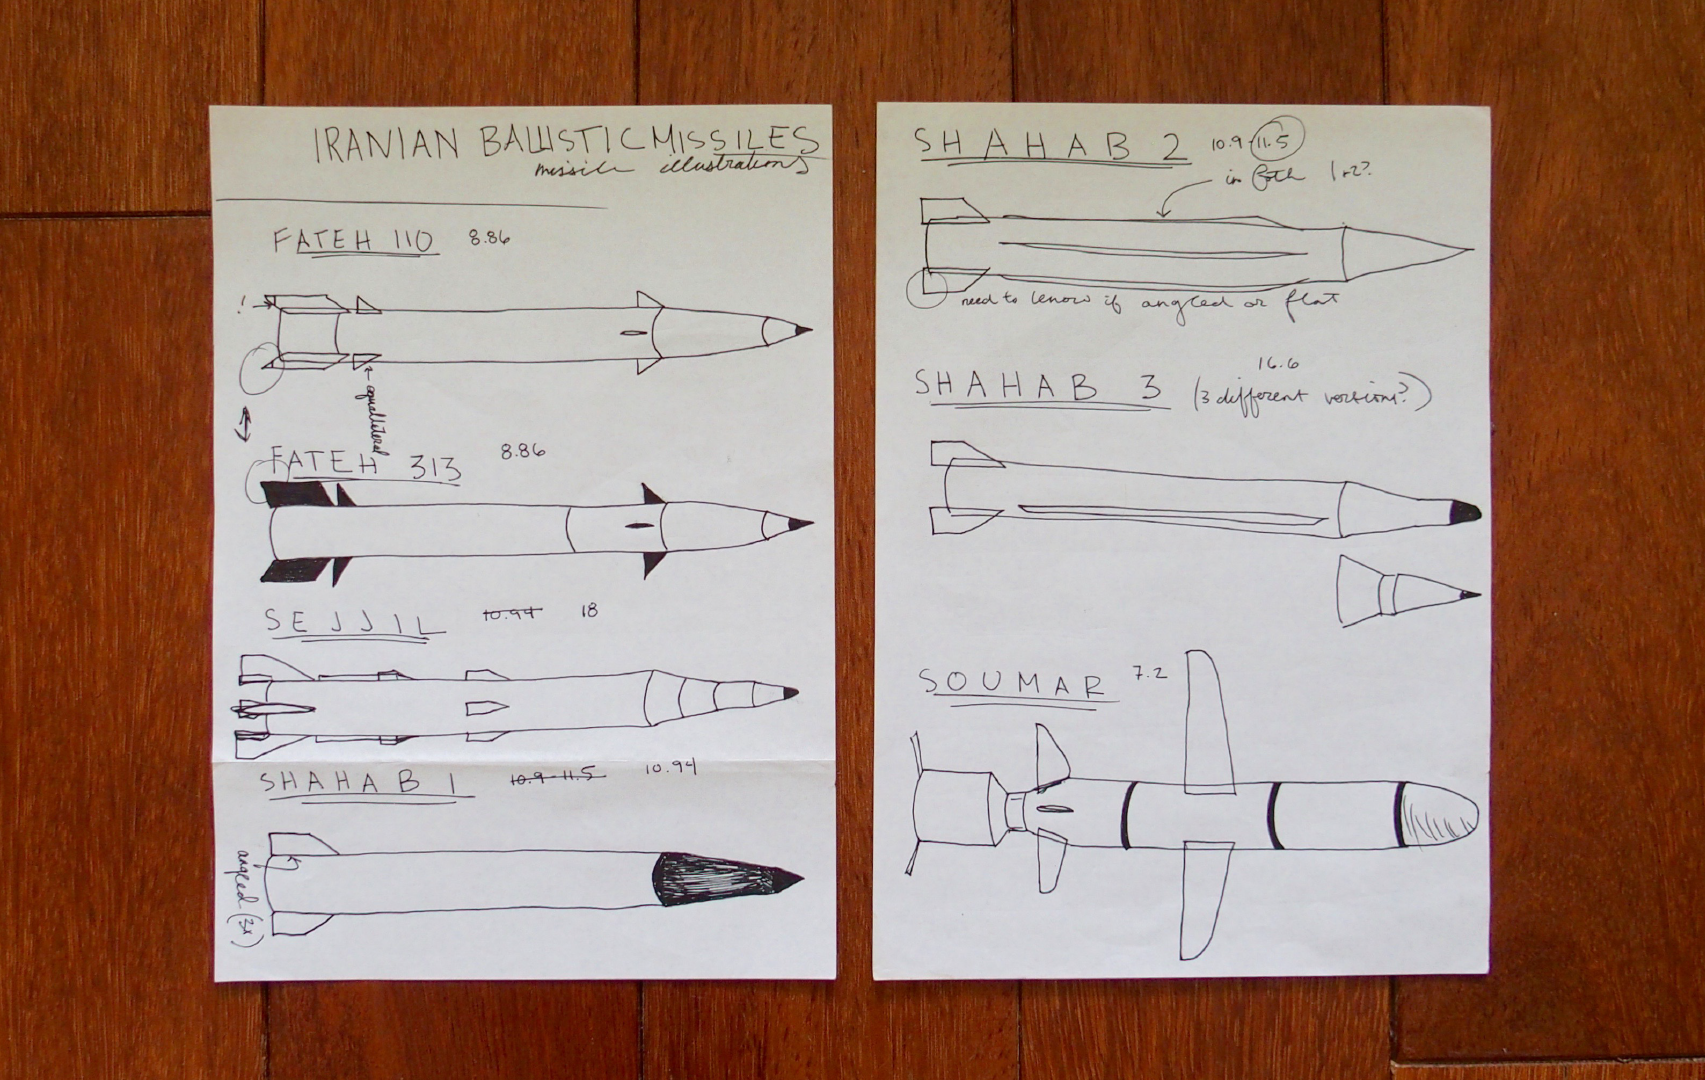 IRANIAN BALLISTIC MISSILES
missile illustrations
FATEH 110 8.86
!
equaliteral
FATEH 313 8.86
SEJJIL 10.94 18
SHAHAB 1 10.9-11.5 10.94
angled (3x)
SHAHAB 2 10.9-11.5
in both 1+2?
need to know if angled or flat
16.6
SHAHAB 3 (3 different versions?)
SOUMAR 7.2